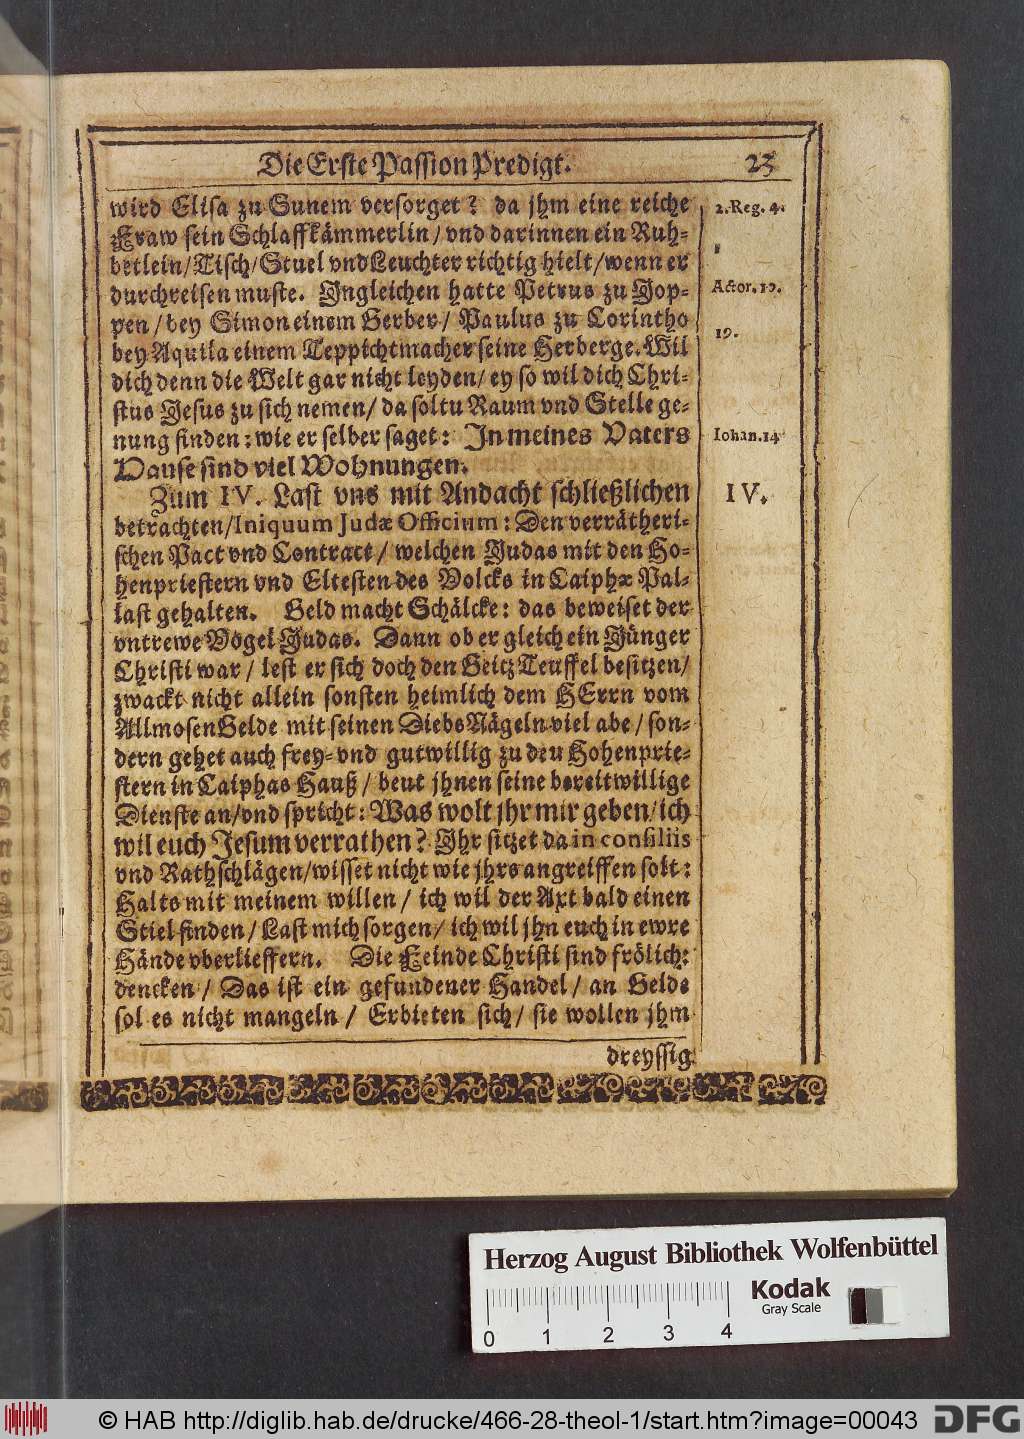 Die Erste Passion Predigt. 23
wird Elisa zu Sunem versorget? da jhm eine reiche
Fraw sein Schlaffkämmerlin/ vnd darinnen ein Ruh-
betlein/ Tisch/ Stuel vnd Leuchter richtig hielt/ wenn er
durchreisen muste. Ingleichen hatte Petrus zu Jop-
pen/ bey Simon einem Gerber/ Paulus zu Corintho
bey Aquila einem Teppichtmacher seine Herberge. Wil
dich denn die Welt gar nicht leyden/ ey so wil dich Chri-
stus Jesus zu sich nemen/ da soltu Raum vnd Stelle ge-
nung finden: wie er selber saget: In meines Vaters
Hause sind viel Wohnungen.
Zum IV. Last vns mit Andacht schließlichen
betrachten/ Iniquum Judæ Officium: Den verrätheri-
schen Pact vnd Contract/ welchen Judas mit den Ho-
henpriestern vnd Eltesten des Volcks in Caiphæ Pal-
last gehalten. Geld macht Schälcke: das beweiset der
vntrewe Vogel Judas. Dann ob er gleich ein Jünger
Christi war/ lest er sich doch den Geitz Teuffel besitzen/
zwackt nicht allein sonsten heimlich dem HErrn vom
Allmosen Gelde mit seinen Diebs Nägeln viel abe/ son-
dern gehet auch frey- vnd gutwillig zu den Hohenprie-
stern in Caiphas Hauß/ beut jhnen seine bereitwillige
Dienste an/ vnd spricht: Was wolt jhr mir geben/ ich
wil euch Jesum verrathen? Ihr sitzet da in consiliis
vnd Rathschlägen/ wisset nicht wie jhrs angreiffen solt:
Halts mit meinem willen/ ich wil der Axt bald einen
Stiel finden/ Last mich sorgen/ ich wil jhn euch in ewre
Hände vberlieffern. Die Feinde Christi sind frölich:
dencken/ Das ist ein gefundener Handel/ an Gelde
sol es nicht mangeln/ Erbieten sich/ sie wollen jhm
dreyssig
2. Reg. 4.
Actor. 10.
19.
Iohan. 14
IV.
Herzog August Bibliothek Wolfenbüttel
Kodak
Gray Scale
0 1 2 3 4
© HAB http://diglib.hab.de/drucke/466-28-theol-1/start.htm?image=00043
DFG